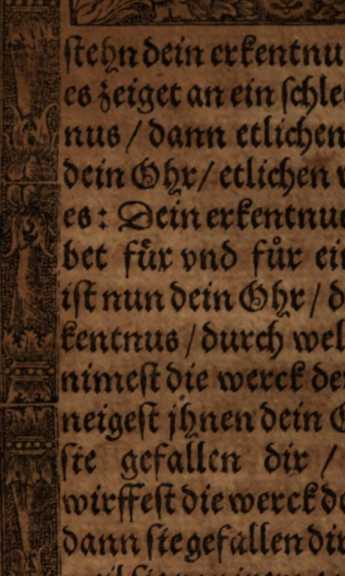 stehn dein erkentnu
es zeiget an ein schle
nus / dann etlichen
dein Ohr / etlichen
es: Dein erkentnus
bet für vnd fůr ein
ist nun dein Ohr / d
kentnus / durch wel
nimest die werck de
neigest jhnen dein
sie gefallen dir /
wirffest die werck d
dann sie gefallen dir